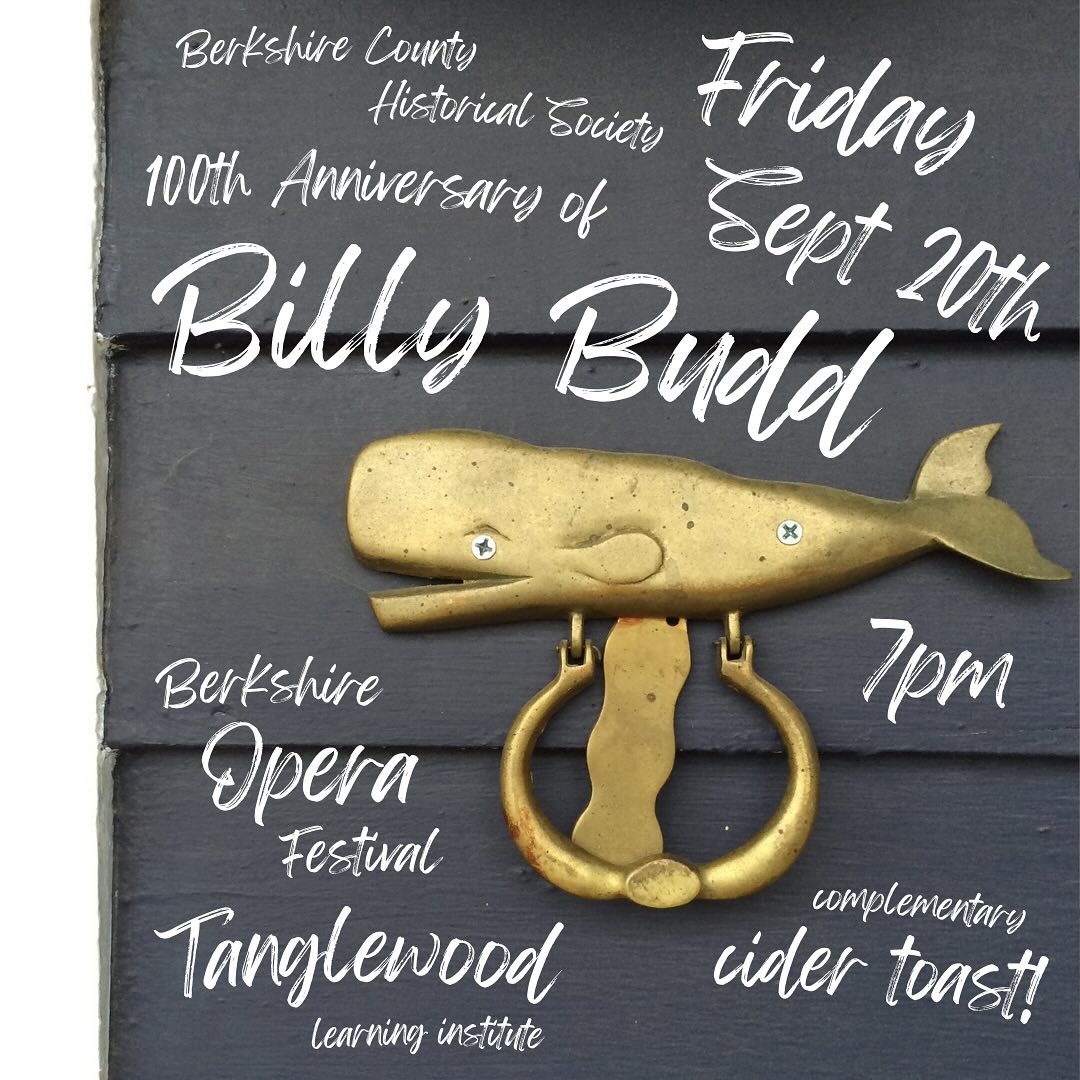 Berkshire County
Historical Society
100th Anniversary of
Billy Budd
Friday
Sept 20th
7pm
Berkshire
Opera
Festival
Tanglewood
learning institute
complementary
cider toast!